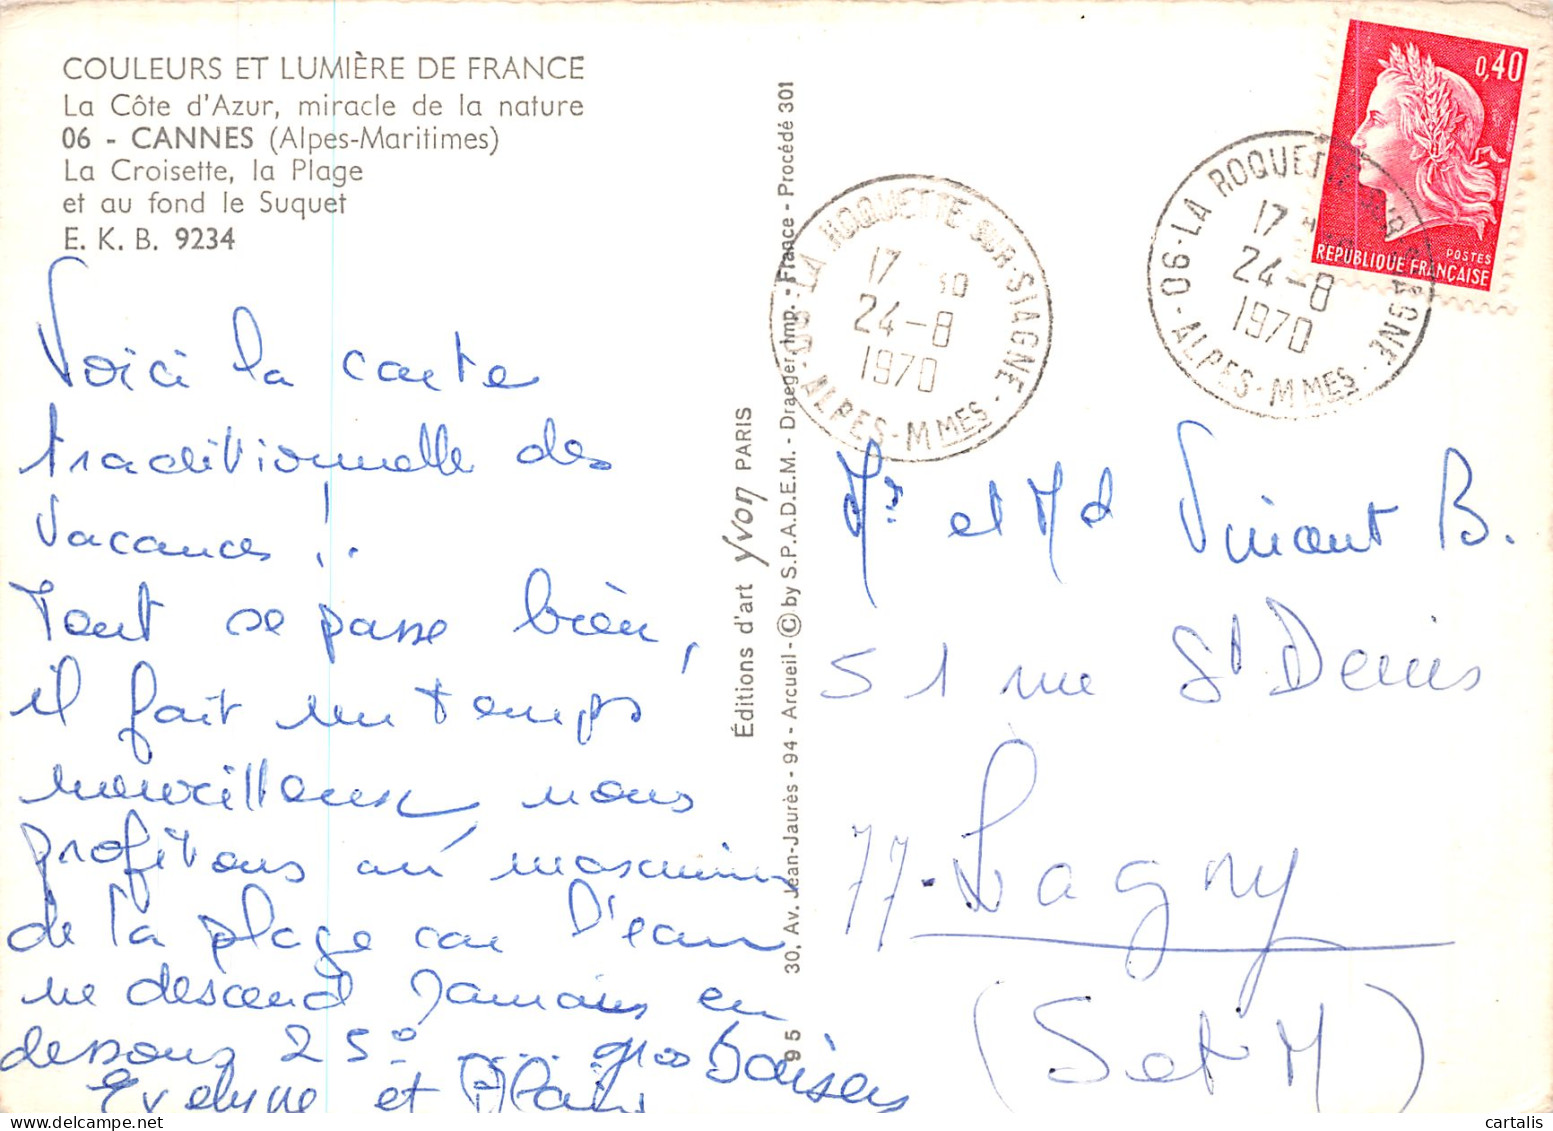 COULEURS ET LUMIÈRE DE FRANCE
La Côte d'Azur, miracle de la nature
06 - CANNES (Alpes-Maritimes)
La Croisette, la Plage
et au fond le Suquet
E. K. B. 9234
Voici la carte
traditionnelle des
vacances !..
Tout se passe bien,
il fait un temps
merveilleux, nous
profitons au maximum
de la plage car l'eau
ne descend jamais en
dessous 25° ... gros baisers
Evelyne et Alain
Éditions d'art Yvon PARIS
30, Av. Jean-Jaurès - 94 - Arcueil - © by S.P.A.D.E.M. - Draeger, Imp. - France - Procédé 301
95
06 - LA ROQUETTE SUR-SIAGNE - ALPES-MMES
17 30
24-8
1970
06 - LA ROQUETTE SUR SIAGNE - ALPES-MMES
17
24-8
1970
0,40
POSTES
REPUBLIQUE FRANÇAISE
Mr et Md Vincent B.
51 rue St Denis
77. Lagny
(S et M)
cartalis